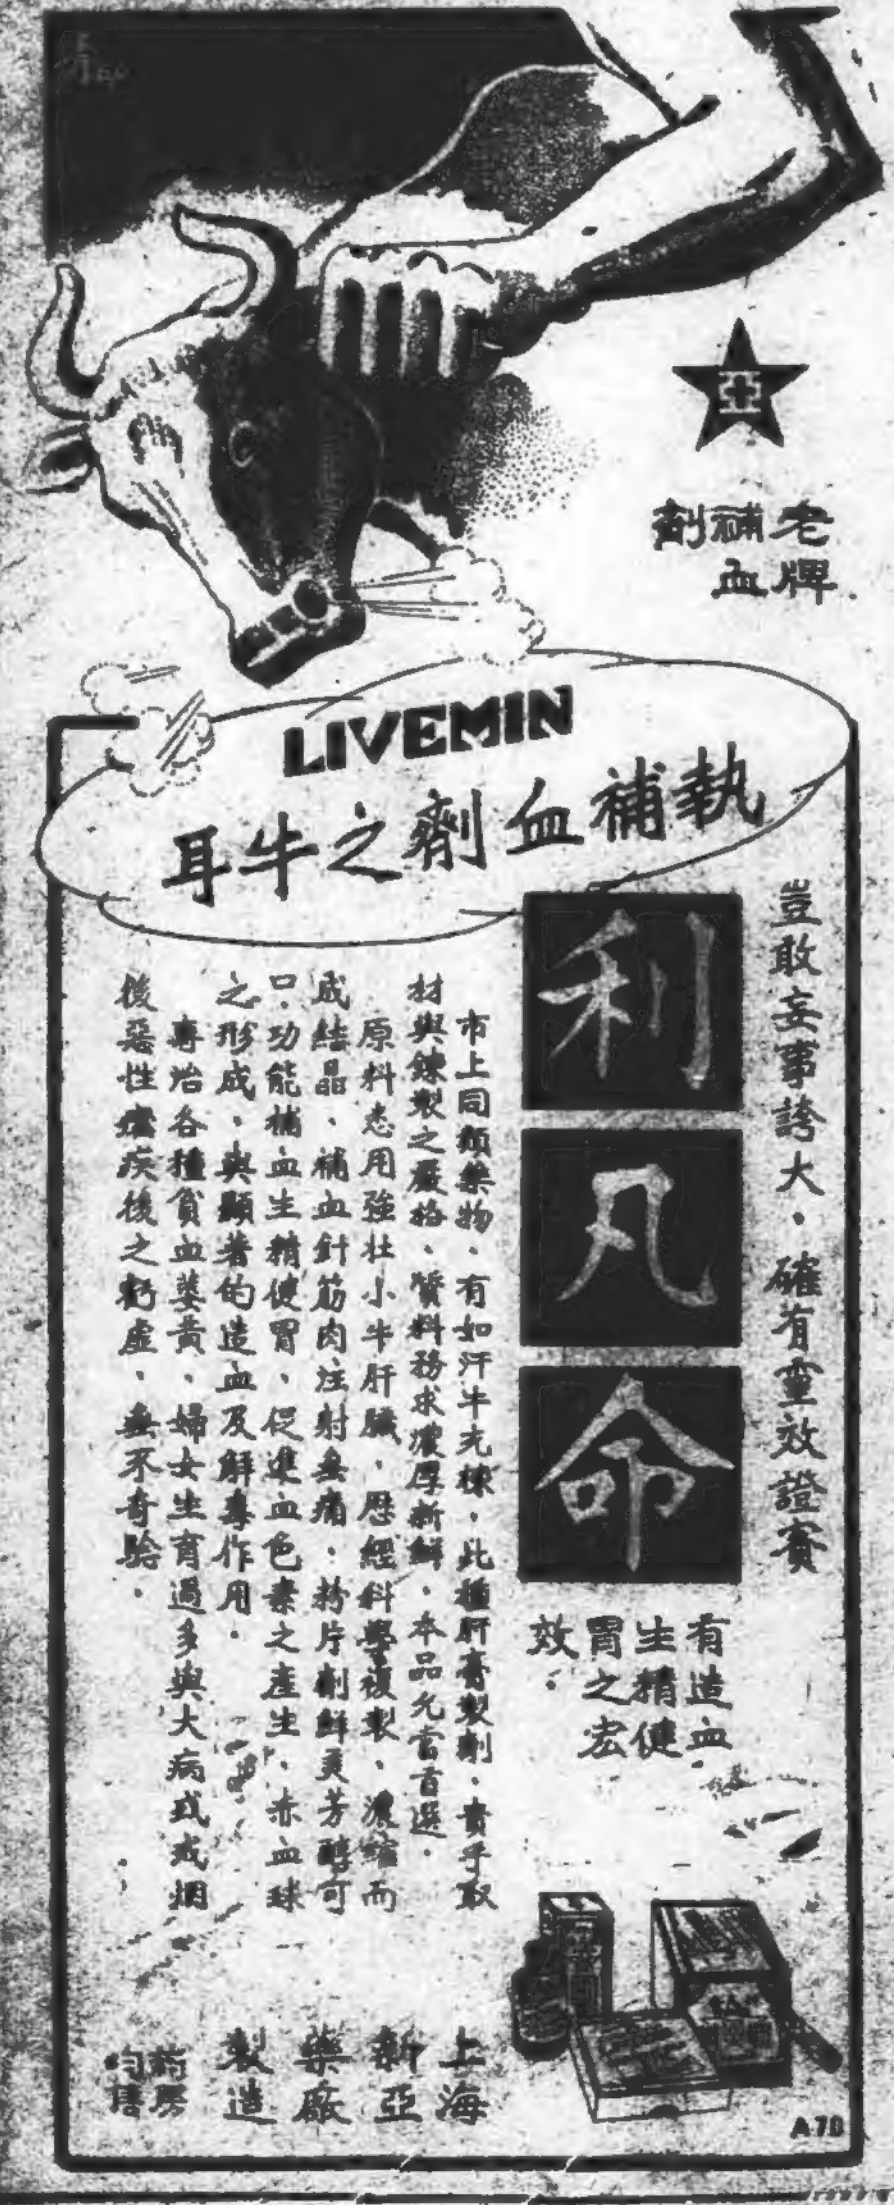 亞
老牌
補血
劑
LIVEMIN
執補血劑之牛耳
豈敢妄事誇大・確有靈效證實
利凡命
有造血
生精健
胃之宏
效・
市上同類藥物、有如汗牛充棟、此種肝膏製劑、貴乎取
材與鍊製之嚴格、質料務求濃厚新鮮、本品允當首選・
原料悉用強壯小牛肝臟、歷經科學複製、濃縮而
成結晶、補血針筋肉注射無痛・粉片劑鮮美芳醇可
口・功能補血生精健胃、促進血色素之產生、赤血球
之形成、與顯著的造血及解毒作用・
專治各種貧血萎黃、婦女生育過多與大病或戒烟
後惡性瘧疾後之虧虛、無不奇驗・
上海
新亞
藥廠
製造
葯房
均售
A70